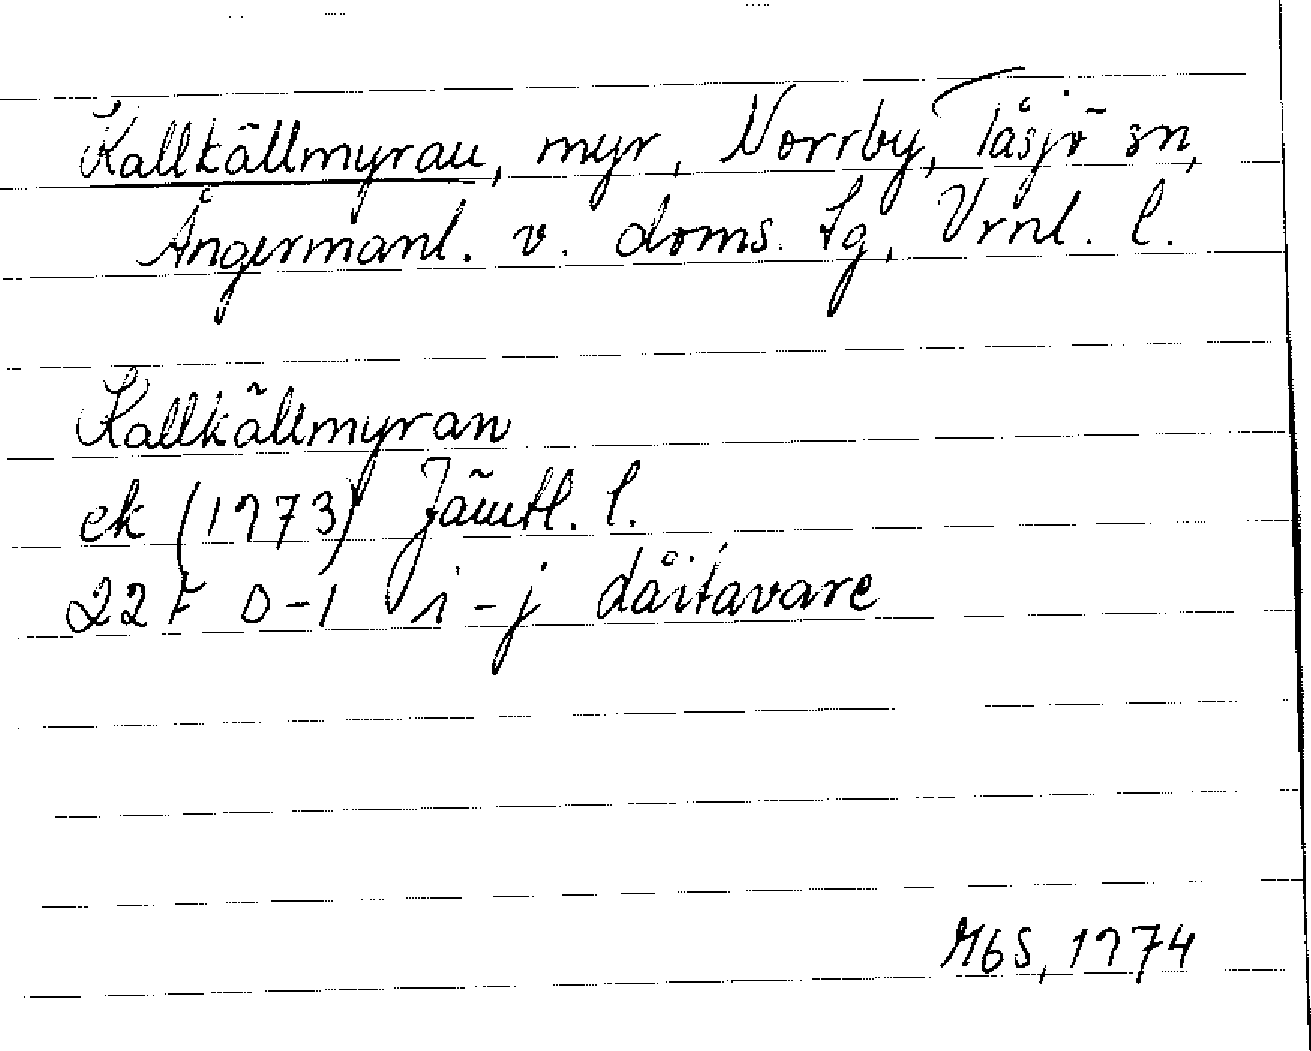 Kallkällmyran, myr, Norrby, Tåsjö sn,
Ångermanl. v. doms. tg, Vrnl. l.
Kallkällmyran
ek (1973) Jämtl. l.
22 F 0-1 i-j dåitavare
MGS, 1974